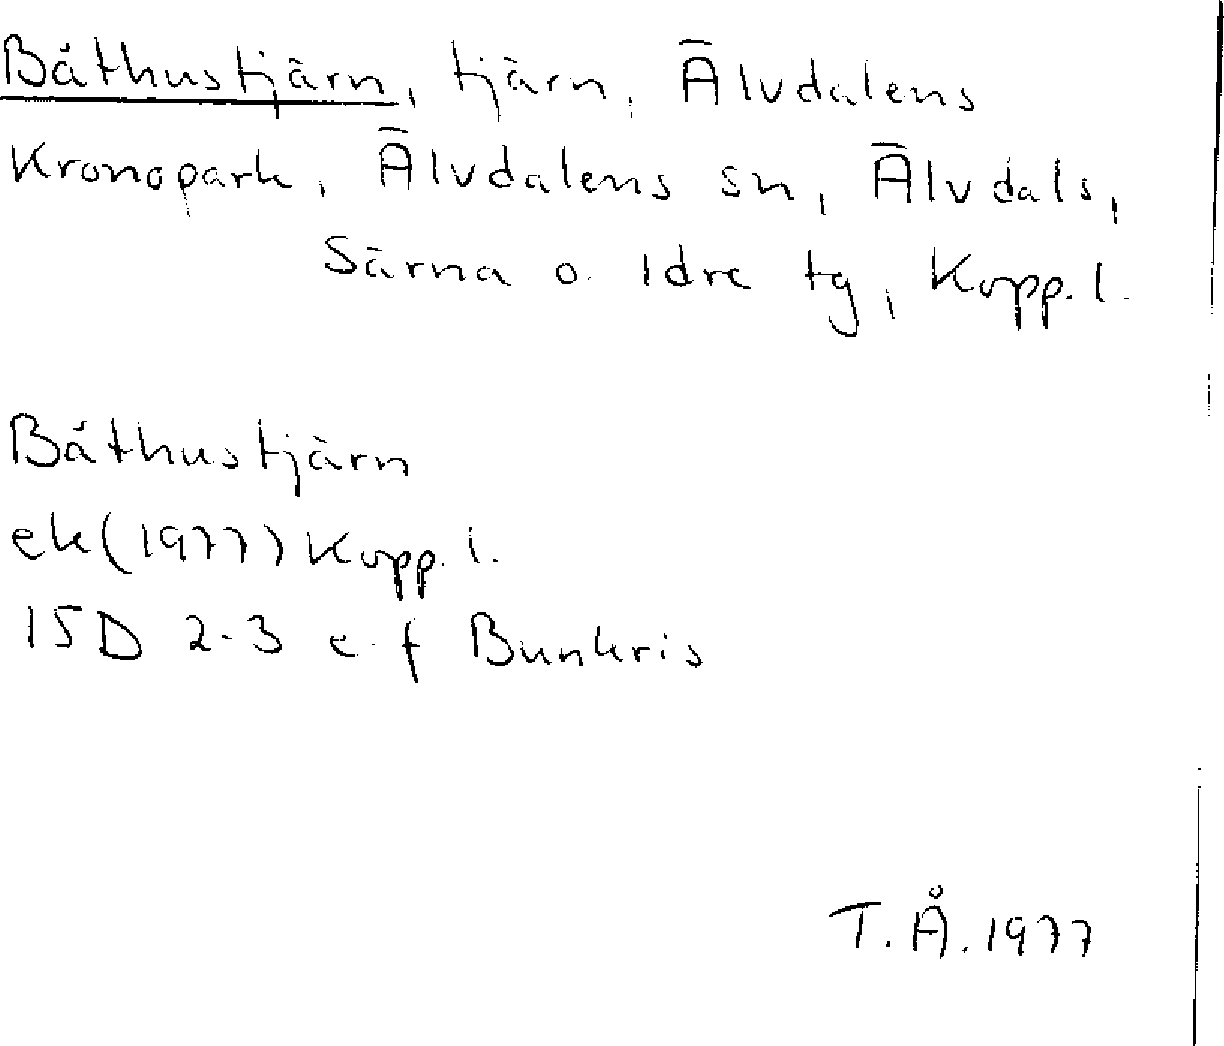 Båthustjärn, tjärn, Älvdalens
Kronopark, Älvdalens sn, Älvdals,
Särna o. Idre tg, Kopp. l.
Båthustjärn
ek (1977) Kopp. l.
15D 2-3 e-f Bunkris
T.Å. 1977